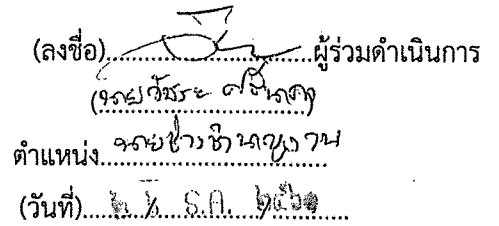 (ลงชื่อ)..............................ผู้ร่วมดำเนินการ
(นายวัชระ
ตำแหน่ง นายช่างชำนาญงาน
(วันที่) ธ.ค.